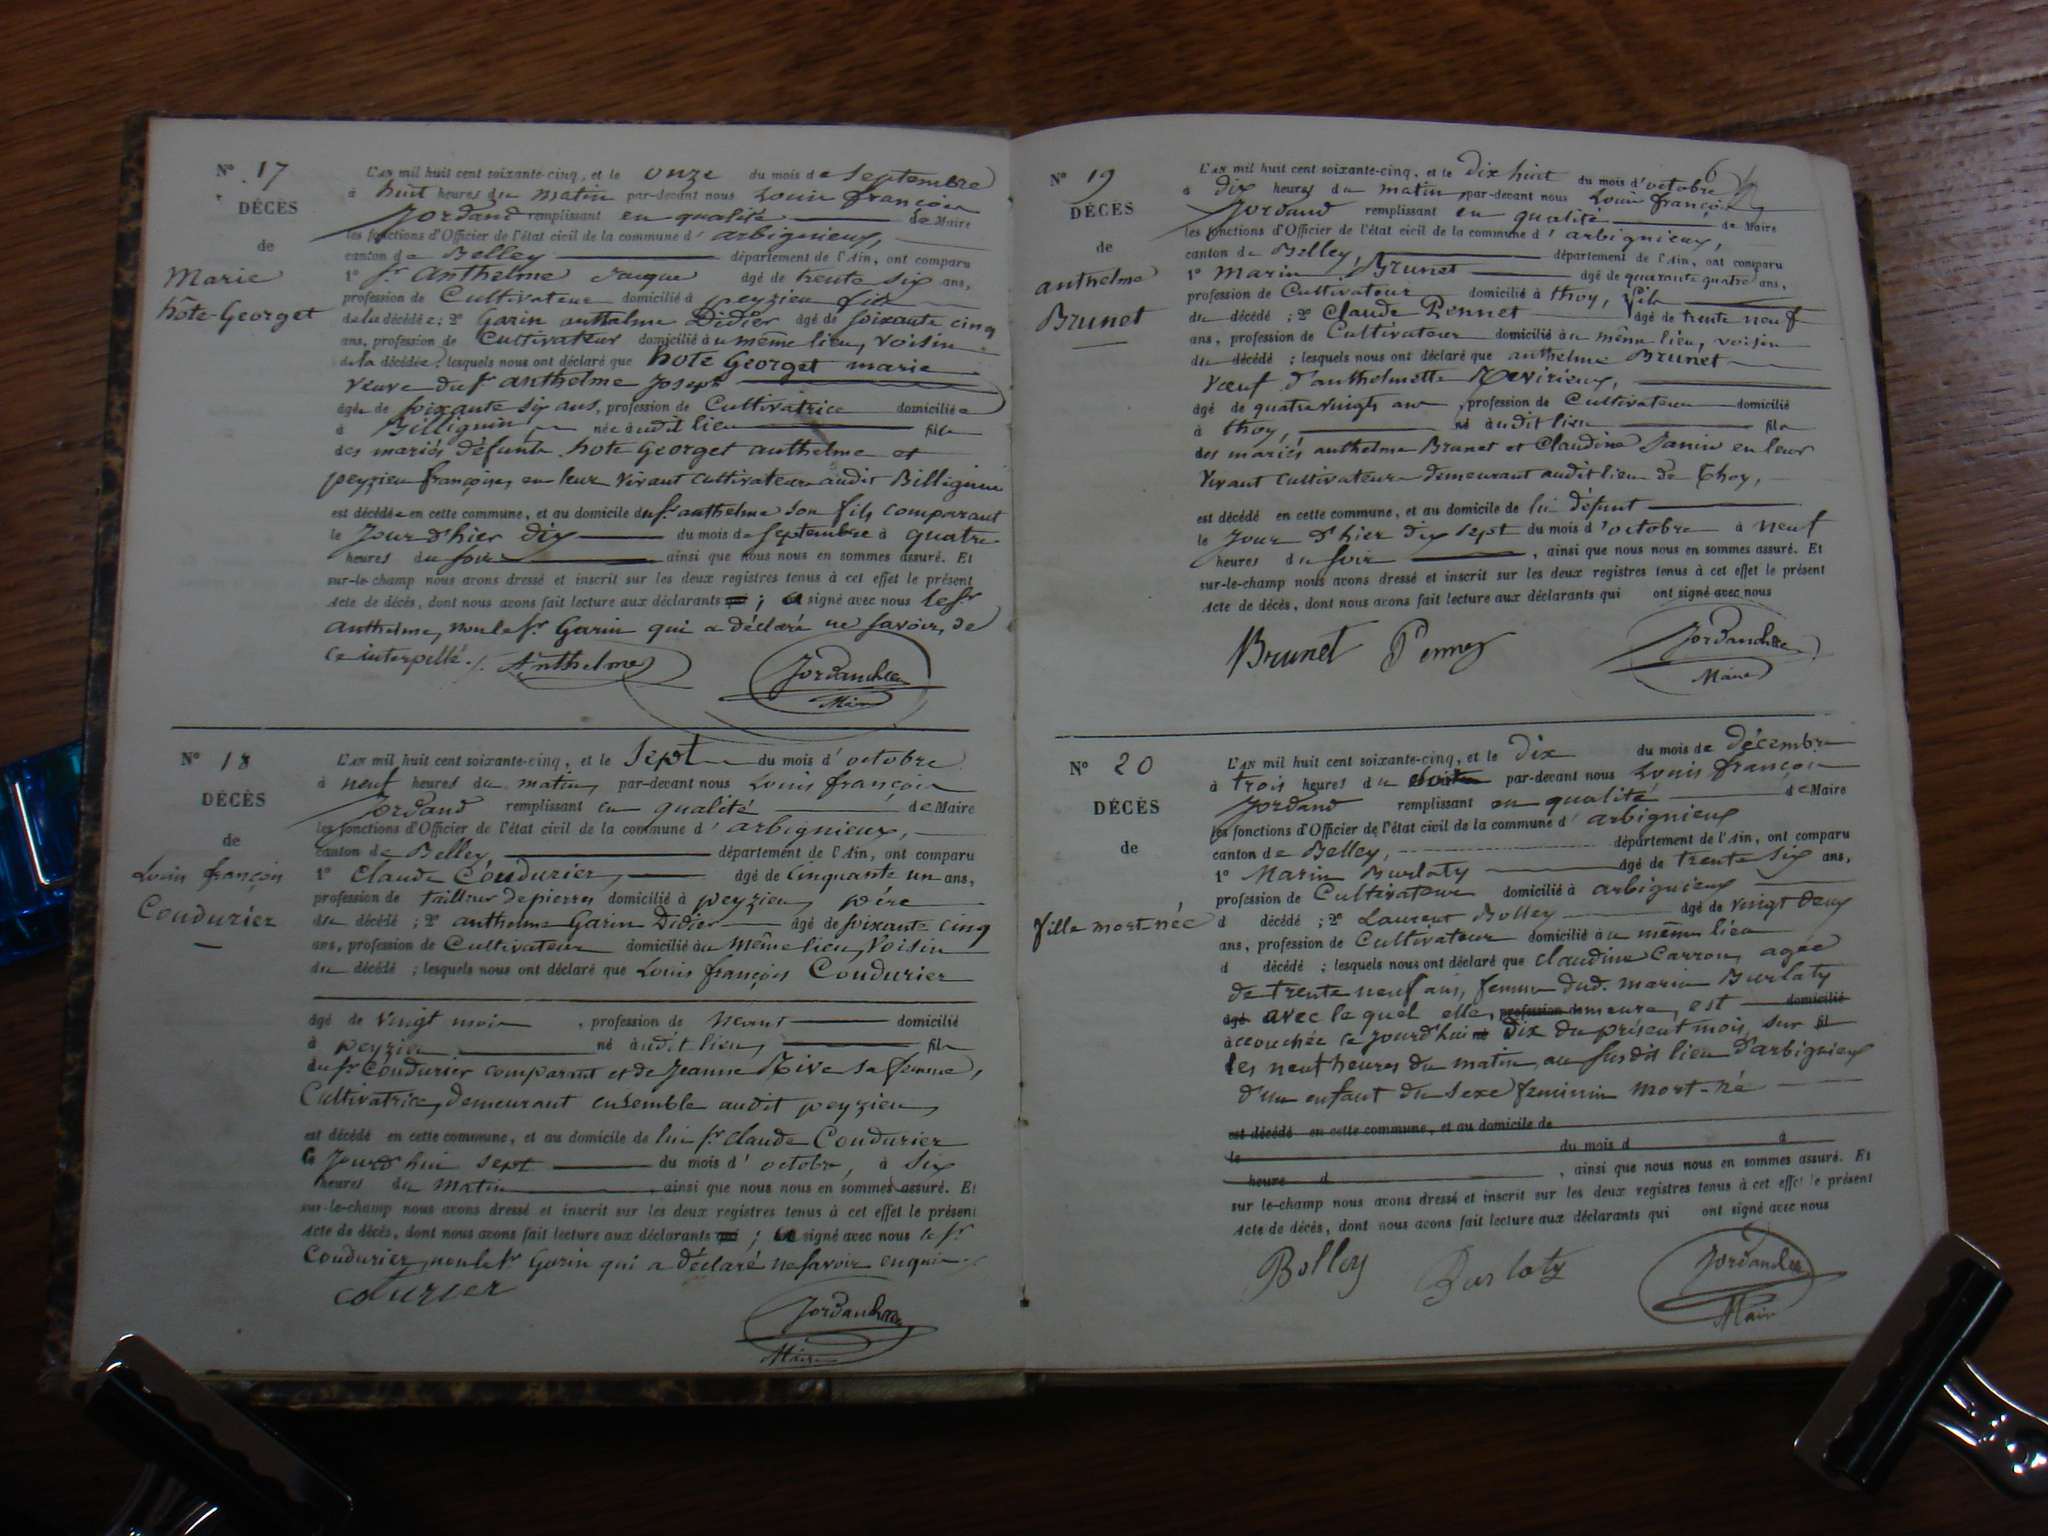 N° 17
DÉCÈS
de
Marie
hôte-Georget
L'AN mil huit cent soixante-cinq, et le onze du mois de septembre
à huit heures du matin par-devant nous Louis françois
Jordand remplissant en qualité de Maire
les fonctions d'Officier de l'état civil de la commune d'arbignieux,
canton de Belley département de l'Ain, ont comparu
1° sr Anthelme Jacques âgé de trente six ans,
profession de Cultivateur domicilié à peyzieu fils
de la décédée; 2° Garin anthelme Didier âgé de soixante cinq
ans, profession de Cultivateur domicilié au même lieu, voisin
de la décédée; lesquels nous ont déclaré que hote Georget marie
veuve du sr anthelme Joseph
âgée de soixante six ans, profession de Cultivatrice domiciliée
à Billignin, née audit lieu fille
des mariés défunts hote Georget anthelme et
peyzieu françoise, en leur vivant cultivateurs audit Billignin
est décédée en cette commune, et au domicile du sr anthelme son fils comparant
le Jour d'hier dix du mois de septembre à quatre
heures du soir ainsi que nous nous en sommes assuré. Et
sur-le-champ nous avons dressé et inscrit sur les deux registres tenus à cet effet le présent
Acte de décès, dont nous avons fait lecture aux déclarants qui; a signé avec nous le sr
Anthelme, non le sr Garin qui a déclaré ne savoir, de
ce interpellé./. Anthelme Jordand
Maire
N° 18
DÉCÈS
de
Louis françois
Coudurier
L'AN mil huit cent soixante-cinq, et le sept du mois d'octobre
à neuf heures du matin, par-devant nous Louis françois
Jordand remplissant en qualité de Maire
les fonctions d'Officier de l'état civil de la commune d'arbignieux,
canton de Belley département de l'Ain, ont comparu
1° Claude Coudurier, âgé de Cinquante un ans,
profession de tailleur de pierres domicilié à peyzieu, père
du décédé; 2° anthelme Garin Didier âgé de soixante cinq
ans, profession de Cultivateur domicilié au même lieu, Voisin
du décédé; lesquels nous ont déclaré que Louis françois Coudurier
âgé de vingt mois, profession de Néant domicilié
à peyzieu né audit lieu, fils
du sr Coudurier comparant et de Jeanne Rive sa femme,
Cultivatrice, demeurant ensemble audit peyzieu,
est décédé en cette commune, et au domicile de lui sr Claude Coudurier
le Jourd'hui sept du mois d'octobre, à six
heures du matin ainsi que nous nous en sommes assuré. Et
sur-le-champ nous avons dressé et inscrit sur les deux registres tenus à cet effet le présent
Acte de décès, dont nous avons fait lecture aux déclarants qui; a signé avec nous le sr
Coudurier, non le sr Garin qui a déclaré ne savoir enquis
Jordand
Maire
N° 19
DÉCÈS
de
anthelme
Brunet
6
L'AN mil huit cent soixante-cinq, et le dix huit du mois d'octobre
à dix heures du matin, par-devant nous Louis françois
Jordand remplissant en qualité de Maire
les fonctions d'Officier de l'état civil de la commune d'arbignieux,
canton de Belley, département de l'Ain, ont comparu
1° Marin Brunet âgé de quarante quatre ans,
profession de Cultivateur domicilié à thoy, fils
du décédé; 2° Claude Pennet âgé de trente neuf
ans, profession de Cultivateur domicilié au même lieu, voisin
du décédé; lesquels nous ont déclaré que anthelme Brunet
Vœuf d'anthelmette
âgé de quatre vingts ans, profession de Cultivateur domicilié
à thoy, né audit lieu fils
des mariés anthelme Brunet et Claudine Janin en leur
Vivant cultivateurs demeurant audit lieu de Thoy,
est décédé en cette commune, et au domicile de lui défunt
le Jour d'hier dix sept du mois d'octobre à neuf
heures du soir, ainsi que nous nous en sommes assuré. Et
sur-le-champ nous avons dressé et inscrit sur les deux registres tenus à cet effet le présent
Acte de décès, dont nous avons fait lecture aux déclarants qui ont signé avec nous
Brunet Jordand
Maire
N° 20
DÉCÈS
de
fille mort née
L'AN mil huit cent soixante-cinq, et le dix du mois de décembre
à trois heures du par-devant nous Louis françois
Jordand remplissant en qualité de Maire
les fonctions d'Officier de l'état civil de la commune d'arbignieux
canton de Belley, département de l'Ain, ont comparu
1° Marin Burlaty âgé de trente six ans,
profession de Cultivateur domicilié à arbignieux
d décédé; 2° Laurent Bolley âgé de vingt deux
ans, profession de Cultivateur domicilié au même lieu
d décédé; lesquels nous ont déclaré que claudine Carron, agée
de trente neuf ans, femme dud. marin Burlaty
âgé avec le quel elle, profession de demeure, est domicilié
accouchée ce jourd'hui né dix du présent mois, sur fil
les neuf heures du matin, au susdit lieu d'arbignieux
d'un enfant du sexe feminin mort-né
est décédé en cette commune, et au domicile de
le du mois d à
heure d, ainsi que nous nous en sommes assuré. Et
sur-le-champ nous avons dressé et inscrit sur les deux registres tenus à cet effet le présent
Acte de décès, dont nous avons fait lecture aux déclarants qui ont signé avec nous
Bolley Burlaty Jordand
Maire